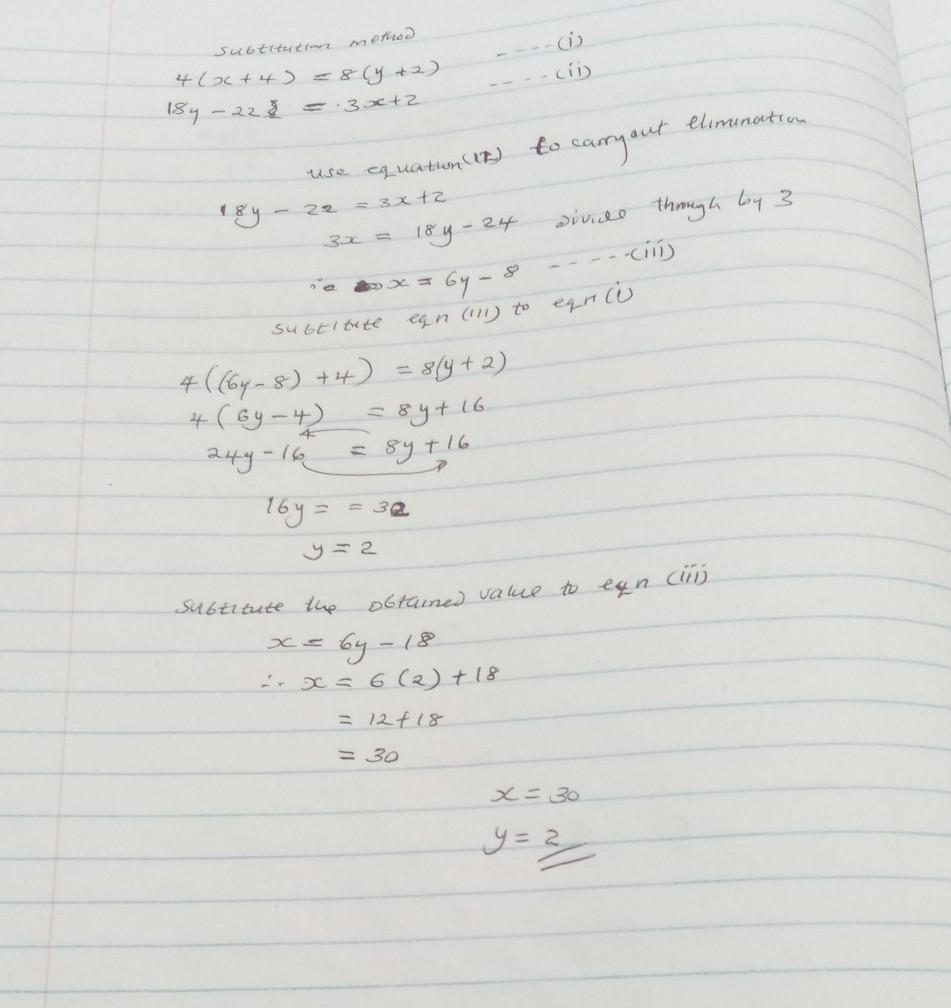 substitution method
4(x+4) = 8(y+2) ----(i)
18y - 22 = 3x+2 ----(ii)
use equation (ii) to carryout elimination
18y - 22 = 3x+2
3x = 18y - 24 divide through by 3
ie x = 6y - 8 -----(iii)
substitute eqn (iii) to eqn (i)
4((6y-8)+4) = 8(y+2)
4(6y-4) = 8y+16
24y-16 = 8y+16
16y = = 32
y = 2
substitute the obtained value to eqn (iii)
x = 6y - 18
∴ x = 6(2)+18
= 12+18
= 30
x = 30
y = 2